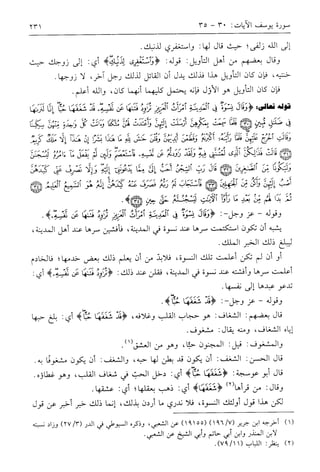 سورة يوسف الآيات: ٣٠ - ٣٥
٢٣١
إلى الله زلفى؛ حيث قال لها: واستغفري لذنبك.
وقال بعضهم من أهل التأويل: قوله: ﴿وَاسْتَغْفِرِي لِذَنْبِكِ﴾ أي: إلى زوجك حيث
خنتيه، فإن كان التأويل هذا فذلك يدل أن القائل لذلك رجل آخر، لا زوجها.
فإن كان التأويل هو الأوّل فإنه يحتمل كليهما أيهما كان، والله أعلم.
قوله تعالى: ﴿وَقَالَ نِسْوَةٌ فِي الْمَدِينَةِ امْرَأَتُ الْعَزِيزِ تُرَاوِدُ فَتَاهَا عَن نَّفْسِهِ قَدْ شَغَفَهَا حُبًّا إِنَّا لَنَرَاهَا
فِي ضَلَالٍ مُّبِينٍ ﴿٣٠﴾ فَلَمَّا سَمِعَتْ بِمَكْرِهِنَّ أَرْسَلَتْ إِلَيْهِنَّ وَأَعْتَدَتْ لَهُنَّ مُتَّكَأً وَآتَتْ كُلَّ وَاحِدَةٍ مِّنْهُنَّ سِكِّينًا
وَقَالَتِ اخْرُجْ عَلَيْهِنَّ فَلَمَّا رَأَيْنَهُ أَكْبَرْنَهُ وَقَطَّعْنَ أَيْدِيَهُنَّ وَقُلْنَ حَاشَ لِلَّهِ مَا هَذَا بَشَرًا إِنْ هَذَا إِلَّا مَلَكٌ كَرِيمٌ
﴿٣١﴾ قَالَتْ فَذَلِكُنَّ الَّذِي لُمْتُنَّنِي فِيهِ وَلَقَدْ رَاوَدتُّهُ عَن نَّفْسِهِ فَاسْتَعْصَمَ وَلَئِن لَّمْ يَفْعَلْ مَا آمُرُهُ لَيُسْجَنَنَّ
وَلَيَكُونًا مِّنَ الصَّاغِرِينَ ﴿٣٢﴾ قَالَ رَبِّ السِّجْنُ أَحَبُّ إِلَيَّ مِمَّا يَدْعُونَنِي إِلَيْهِ وَإِلَّا تَصْرِفْ عَنِّي كَيْدَهُنَّ
أَصْبُ إِلَيْهِنَّ وَأَكُن مِّنَ الْجَاهِلِينَ ﴿٣٣﴾ فَاسْتَجَابَ لَهُ رَبُّهُ فَصَرَفَ عَنْهُ كَيْدَهُنَّ إِنَّهُ هُوَ السَّمِيعُ الْعَلِيمُ
﴿٣٤﴾ ثُمَّ بَدَا لَهُم مِّن بَعْدِ مَا رَأَوُا الْآيَاتِ لَيَسْجُنُنَّهُ حَتَّى حِينٍ ﴿٣٥﴾﴾.
وقوله - عز وجل-: ﴿وَقَالَ نِسْوَةٌ فِي الْمَدِينَةِ امْرَأَتُ الْعَزِيزِ تُرَاوِدُ فَتَاهَا عَن نَّفْسِهِ﴾.
يشبه أن تكون استكتمت سرها عند نسوة في المدينة، فأفشين سرها عند أهل المدينة،
ليبلغ ذلك الخبر الملك.
أو أن لم تكن أعلمت تلك النسوة، فلابدّ من أن يعلم ذلك بعض خدمها؛ فالخادم
أعلمت سرها وأفشته عند نسوة في المدينة، فقلن عند ذلك: ﴿تُرَاوِدُ فَتَاهَا عَن نَّفْسِهِ﴾ أي:
تدعو عبدها إلى نفسها.
وقوله - عز وجل-: ﴿قَدْ شَغَفَهَا حُبًّا﴾.
قال بعضهم: الشغاف: هو حجاب القلب وغلافه، ﴿قَدْ شَغَفَهَا حُبًّا﴾ أي: بلغ حبها
إياه الشغاف، ومنه يقال: مشغوف.
والمشغوف: قيل: المجنون حبًّا، وهو من العشق(١).
قال الحسن: الشغف: أن يكون قد بطن لها حبه، والشغف: أن يكون مشغوفًا به.
قال أبو عوسجة: ﴿شَغَفَهَا﴾ أي: دخل الحبّ في شغاف القلب، وهو غطاؤه.
وقال: من قرأها(٢) ﴿شَعَفَهَا﴾ أي: ذهب بعقلها؛ أي: عشقها.
لكن هذا قول أولئك النسوة، فلا ندري ما أردن بذلك، إنما ذلك خبر أخبر عن قول
(١) أخرجه ابن جرير (١٩٦/٧) (١٩١٥٥) عن الشعبي، وذكره السيوطي في الدر (٢٧/٤) وزاد نسبته
لابن المنذر وابن أبي حاتم وأبي الشيخ عن الشعبي.
(٢) ينظر: اللباب (٧٩/١١).